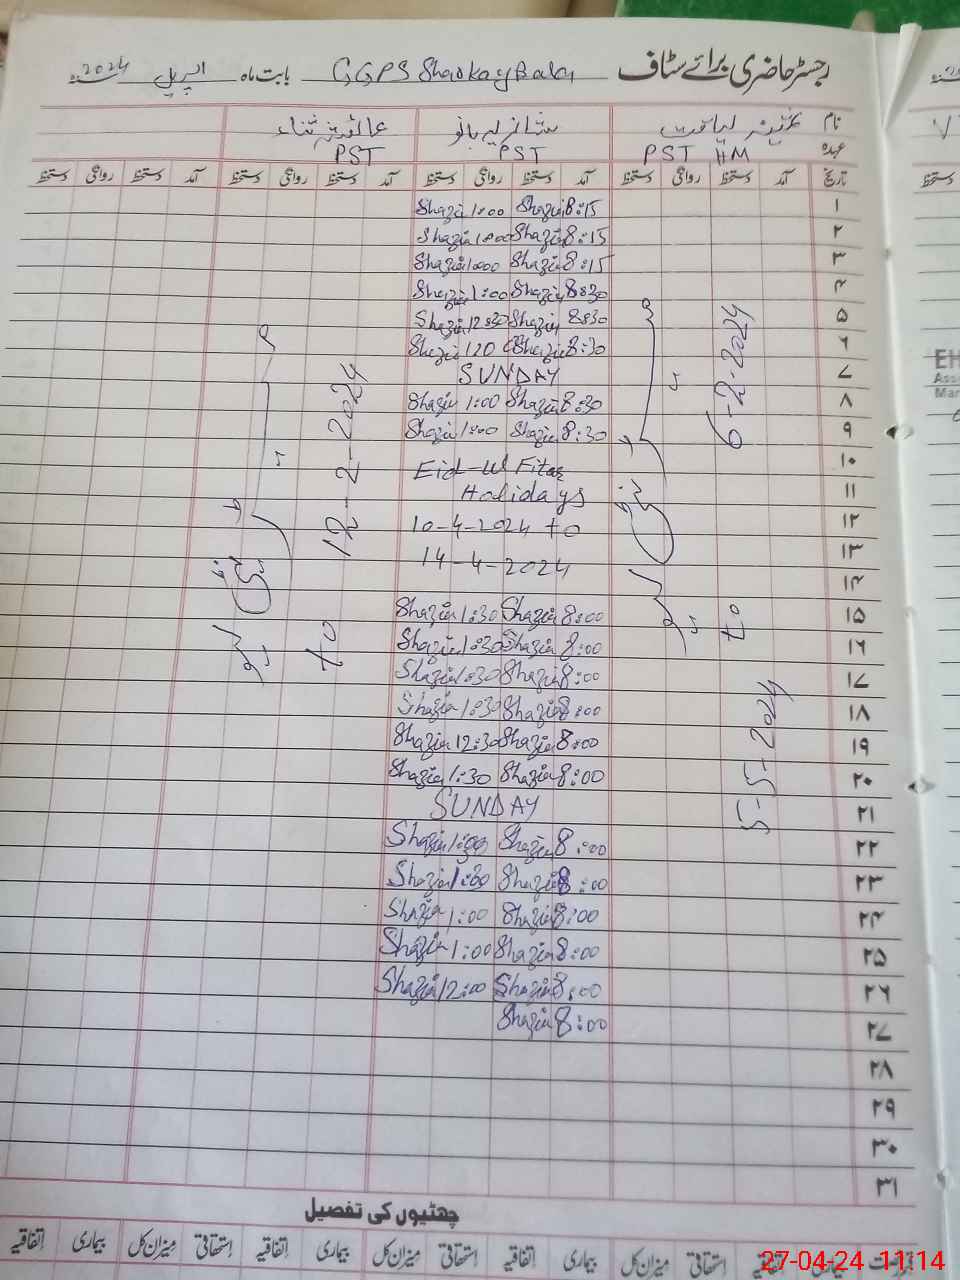 رجسٹر حاضری برائے سٹاف GGPS Sharkay Bala بابت ماہ اپریل 2024ء
نام ثمینہ لیاقت شازیہ بانو عائشہ ثناء
عہدہ PST HM PST PST
تاریخ آمد دستخط روانگی دستخط آمد دستخط روانگی دستخط آمد دستخط روانگی دستخط آمد دستخط روانگی دستخط
۱ 8:15 Shazia 1:00 Shazia
۲ 8:15 Shazia 1:00 Shazia
۳ 8:15 Shazia 1:00 Shazia
۴ 8:30 Shazia 1:00 Shazia
۵ 8:30 Shazia 12:30 Shazia
۶ 8:30 Shazia 120 Shazia
۷ SUNDAY
۸ 8:30 Shazia 1:00 Shazia
۹ 8:30 Shazia 1:00 Shazia
۱۰ Eid-ul Fitar
۱۱ Holidays
۱۲ 10-4-2024 to
۱۳ 14-4-2024
۱۴
۱۵ 8:00 Shazia 1:30 Shazia
۱۶ 8:00 Shazia 1:30 Shazia
۱۷ 8:00 Shazia 1:30 Shazia
۱۸ 8:00 Shazia 1:30 Shazia
۱۹ 8:00 Shazia 12:30 Shazia
۲۰ 8:00 Shazia 1:30 Shazia
۲۱ SUNDAY
۲۲ 8:00 Shazia Shazia
۲۳ 8:00 Shazia Shazia
۲۴ 8:00 Shazia 1:00 Shazia
۲۵ 8:00 Shazia 1:00 Shazia
۲۶ 8:00 Shazia 12:00 Shazia
۲۷ 8:00 Shazia
۲۸
۲۹
۳۰
۳۱
6-2-2024 to 5-5-2024
12-2-2024 to
چھٹیوں کی تفصیل
بیماری اتفاقیہ استحقاقی میزان کل بیماری اتفاقیہ استحقاقی میزان کل بیماری اتفاقیہ استحقاقی میزان کل بیماری اتفاقیہ
27-04-24 11:14